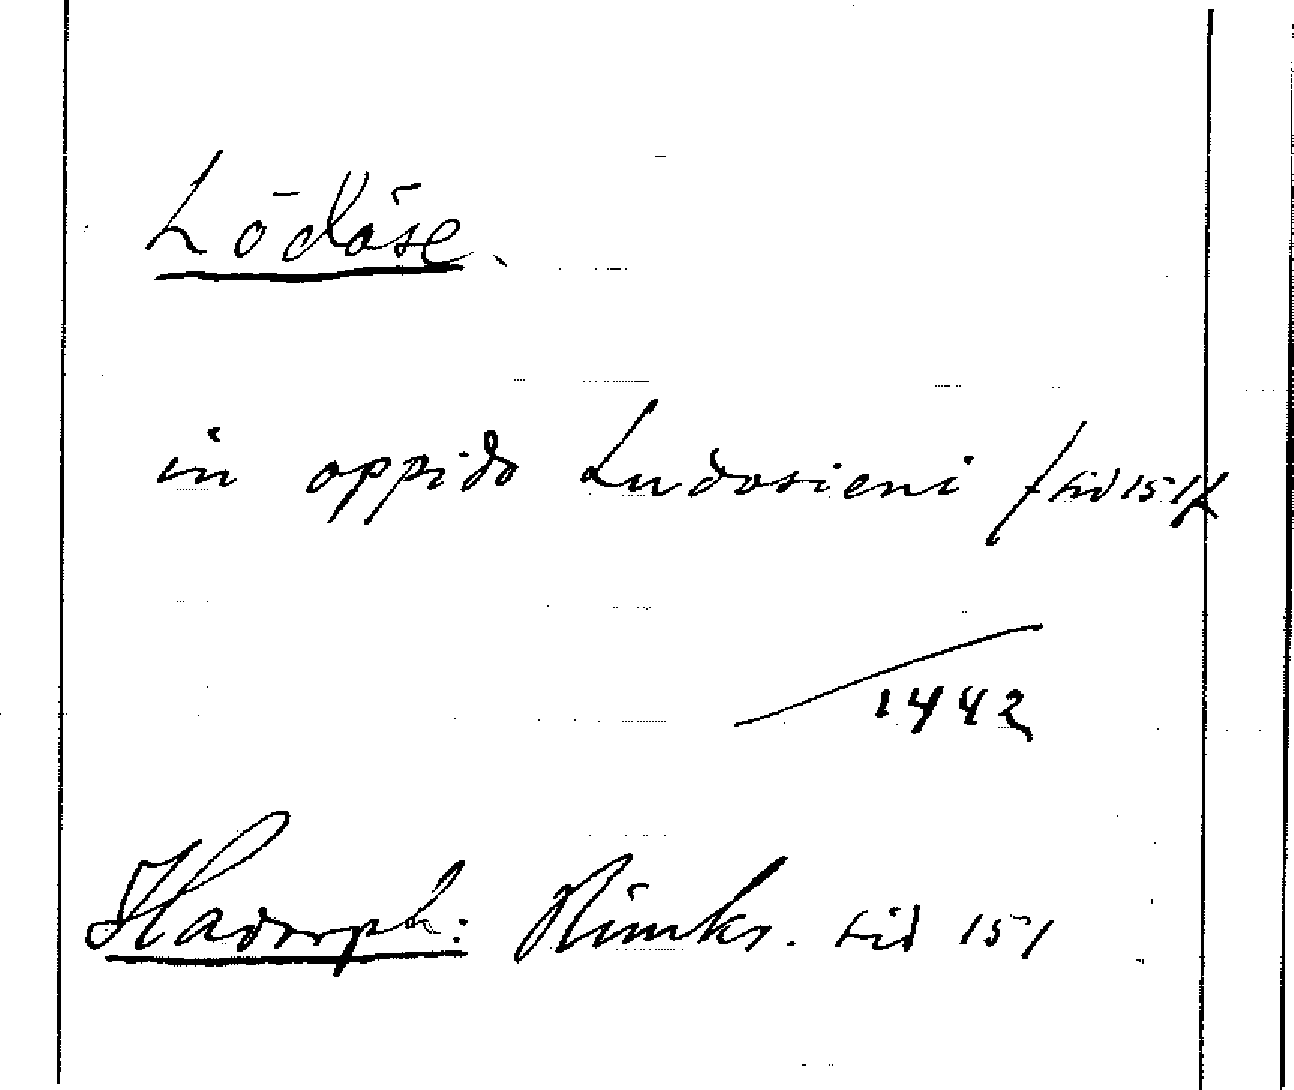 Lödöse.
in oppido Ludosieni /sid 151/
1442
Hadorph: Rimkr. sid 151